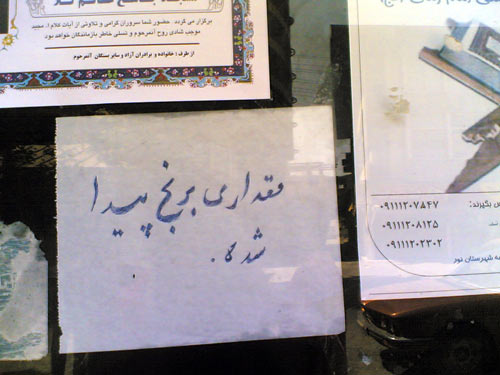 برگزار می گردد. حضور شما سروران گرامی و تلاوتی از آیات کلام ا... مجید
موجب شادی روح آنمرحوم و تسلی خاطر بازماندگان خواهد بود
از طرف : خانواده و برادران آزاد و سایر بستگان آنمرحوم
مقداری برنج پیدا
شده.
بگیرند:
۰۹۱۱۱۲۰۷۸۴۷
۰۹۱۱۱۲۰۸۱۲۵
۰۹۱۱۱۲۰۲۳۰۲
شهرستان نور